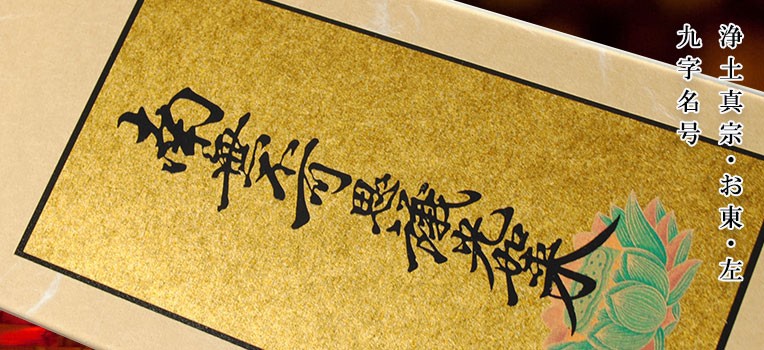 浄土真宗・お東・左
九字名号
南無不可思議光如来